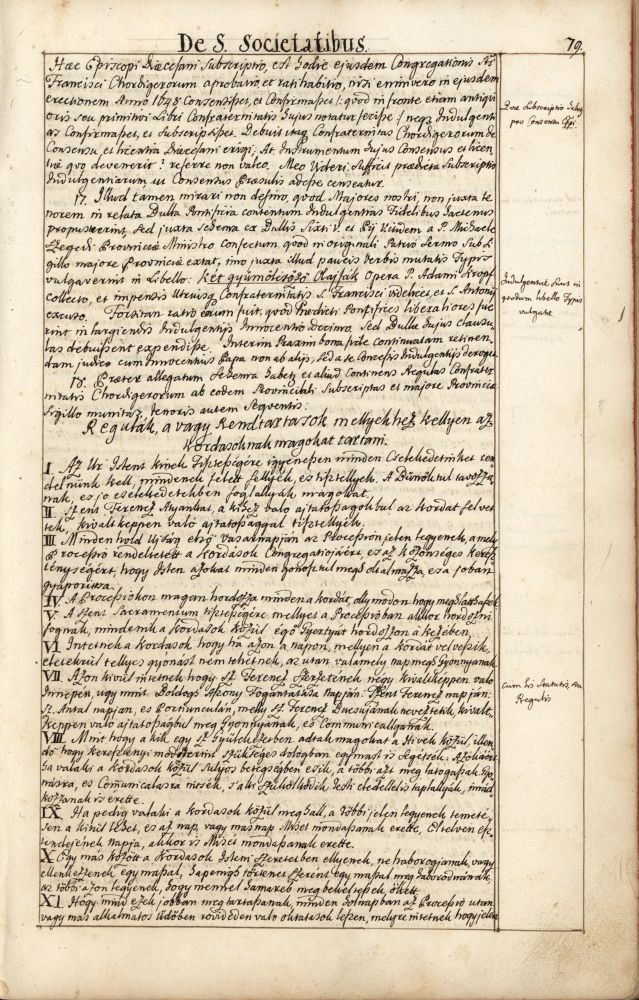 De S. Societatibus.
79.
Haec Episcopi Dioecesani Subscriptio, est hodie ejusdem Congregationis Sti
Francisci Chordigerorum aprobatio, et ratihabitio, nisi enimvero in ejusdem
erectionem Anno 1648 Consensisset, et Confirmasset /: quod in fronte etiam antiqui
oris seu primitivi Libri Confraternitatis hujus notatur fecisse :/ neqz Indulgenti
as Confirmasset, et Subscripsisset. Debuit itaq Confraternitas Chordigerorum de
Consensu, et licentia Dioecesani erigi; At Instrumentum hujus Consensus et licen
tiae quo devenerit? referre non valeo. Meo videri Sufficit praedicta Subscriptio
Indulgentiarum, ut Consensus Praesulis adesse censeatur.
17. Illud tamen mirari non desino, quod Majores nostri, non juxta te
norem in relata Bulla Pontificia contentum Indulgentias Fidelibus hactenus
proposuerint, Sed juxta Schema ex Bullis Sixti V. et Pij Ejusdem a P. Michaele
Szegedi Provinciae Ministro Confectum, quod in originali Patrio Sermo Sub Si
gillo majore Provinciae extat, imo juxta illud paucis verbis mutatis Typis
vulgaverint in Libello: két gyümölcsöző Olajfák Opera P. Adami Kropf
Collecto, et impensis utriusq Confraternitatis S. Francisci videlicet, et S. Antonij
excuso. Forsitan ratio earum fuit, quod Praedicti Pontifices liberaliores fue
rint in largiendis Indulgentijs Innocentio Decimo. Sed Bullae hujus clausu
las debuissent expendisse. Interim Praxim bona fide continuatam retinen
dam judico cum Innocentius Papa non ab alijs, sed a se Concessis Indulgentijs deroget.
18. Praeter allegatum Schema habetz et aliud Continens Regulas Confrater
nitatis Chordigerorum ab eodem Provinciali Subscriptas et majore Provinciae
Sigillo munitas, tenoris autem Sequentis:
Regulák, a vagy Rendtartasok mellyekhez kellyen az
Kordasoknak magokat tartani.
I. Az Ur Istens kinek tisztessegére igyenessen minden Cselekedetinket ren
delnünk kell, mindenek felett fellyék, es tisztellyék. A Bűnöktul tavozza
nak, es jo cselekedetekben foglallyák magokat.
II. Szent Ferencz Atyankat, a kihez való ajtatosságokbul az kordat felvet
ték, kiválképpen való ajtatosággal tisztellyék.
III Minden hold Ujság első vasarnapján az Procession jelen legyenek, a mely
Processio rendeltetett a kordások Congregatiojáért, es az közönséges keresz
ténységért, hogy Isten azokat minden gonosztul megs oltalmazza, es a joban
gyaporittsa.
IV. A Processiokon magan hordozza minden a kordát, oly módon hogy meg lattassék.
V. A szent Sacramentum tisztességére mellyet a Processioban akkor hordozni
fognak, mindenik a kordasok közül egő Gyertyát hordozzon a kezében.
VI Intetnek a kordasok, hogy ha azon a napon, mellyen a kordát vel veszik,
eletekrül tellyes gyónást nem tehetnek, az utan valamely nap meg Gyonnyanak.
VII. Azon kivül intetnek hogy Sz. Ferencz Szerzetének négy kivaltképpen való
Innepén, ugy mint Boldogs Aszony Fogantatása napján: Szent Ferencz napján:
Sz. Antal napjan, es Portiunculan, melly Sz. Ferencz Bucsujának neveztetik, kivált
képpen való ajtatosságbul meg Gyonnyanak, és Communicallyanak.
VIII. Mint hogy a kik egy Sz. Gyülekezetben adták magokat a Hivek közül illen
dő hogy keresztényi modszerint szükséges dologban egymast is segetsék. Azokáért
ha valaki a kordasok közül sulyos betegségben esik, a többi azt meg latogassák Gyo
násra, es Comunicatiora intsék, s a ki szükölködik testi eledellel is taptallyák, imad
kozzanak is erette.
IX. Ha pedig valaki a kordasok közül meg hall, a többi jelen legyenek temeté-
sen a kinül lehet, es az nap, vagy más nap Misét mondassanak erette, el telven esz
tendejének napja, akkor is Misét mondassanak erette.
X Egy más között a kordasok Isteni szeretetben ellyenek, ne haborogjanak, vagy
ellenkezzenek egy mással, ha penigs történet szerint egy mással meg haborodnának,
az többi azon legyenek, hogy mennel hamaréb meg bekeltessék őket.
XI. Hogy mind ezek jobban meg tartassanak, minden holnapban az Processio utan,
vagy más alkalmatos üdőben rövideden való oktatások leszen, melyre intetnek hogy jelen
Indulgentiae sunt in
quodam libello Typis
vulgatae.
Cum his Statutis, seu
Regulis